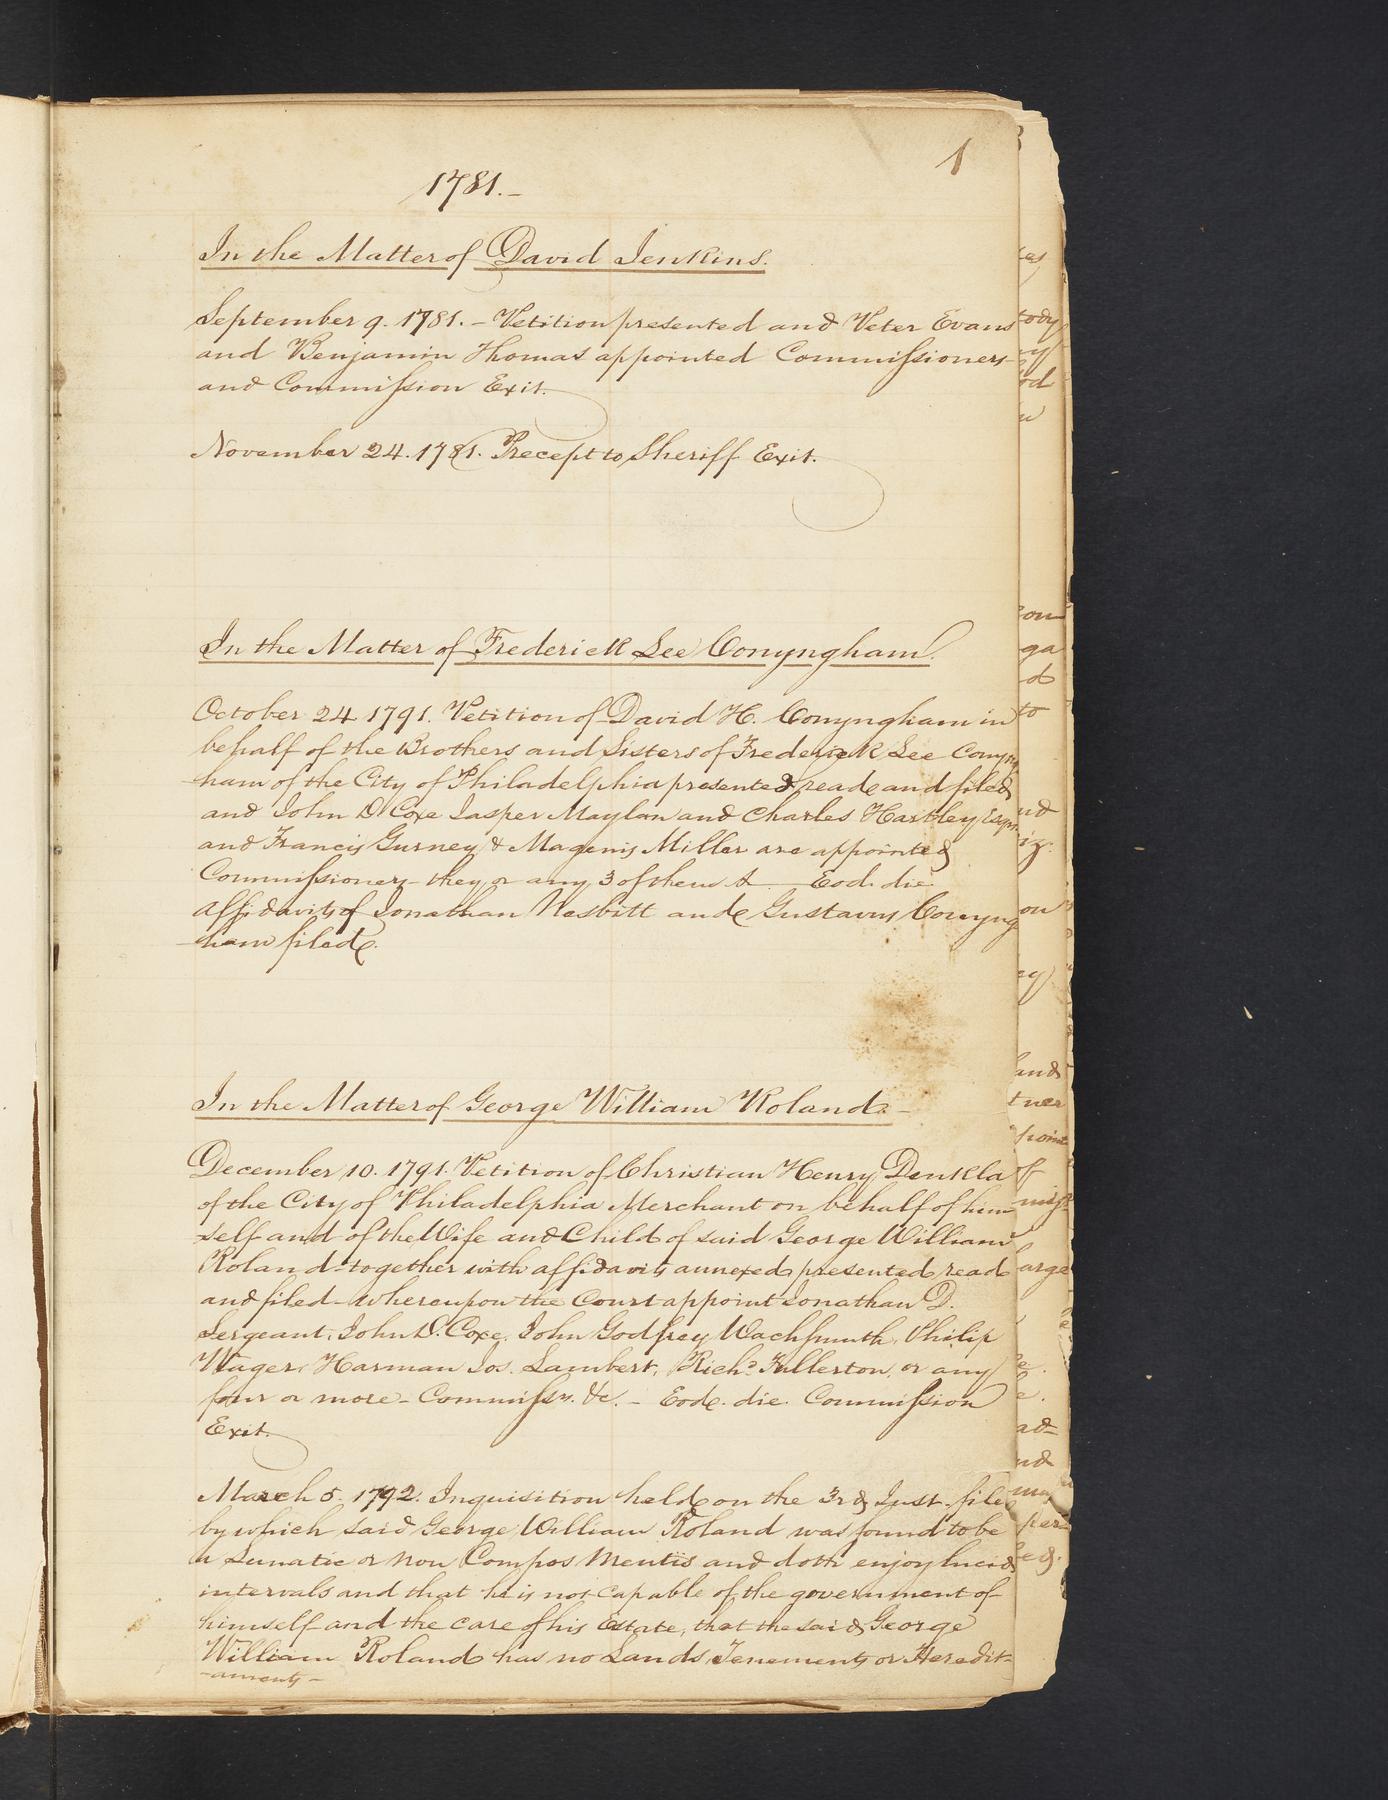 1
1781.-
In the Matter of David Jenkins.
September 9. 1781. - Petition presented and Peter Evans
and Benjamin Thomas appointed Commissioners
and Commission Exit.
November 24. 1781. Precept to Sheriff Exit.
In the Matter of Frederick Lee Conyngham.
October 24 1791. Petition of David H. Conyngham in
behalf of the Brothers and Sisters of Frederick Lee Conyng
ham of the City of Philadelphia presented read and filed
and John D Coxe Jasper Moylan and Charles Hartley Esqrs
and Francis Gurney & Magenis Miller are appointed
Commissioners they or any 3 of them & Eod. die
affidavits of Jonathan Nesbitt and Gustavus Conyng
ham filed.
In the Matter of George William Roland. -
December 10. 1791. Petition of Christian Henry Denkla
of the City of Philadelphia Merchant on behalf of him
self and of the Wife and Child of said George William
Roland - together with affidavits annexed presented read
and filed - whereupon the Court appoint Jonathan D.
Sergeant, John D. Coxe, John Godfrey Wachsmuth, Philip
Wager, Harman Jos. Lambert, Richd Fullerton, or any
four or more - Commissrs. &c. - Eode. die. Commission
Exit.
March 5. 1792. Inquisition held on the 3rd Inst. filed
by which said George William Roland was found to be
a Lunatic or Non Compos Mentis and doth enjoy lucid
intervals and that he is not capable of the government of
himself and the care of his Estate, that the said George
William Roland has no Lands Tenements or Heredit-
-aments -